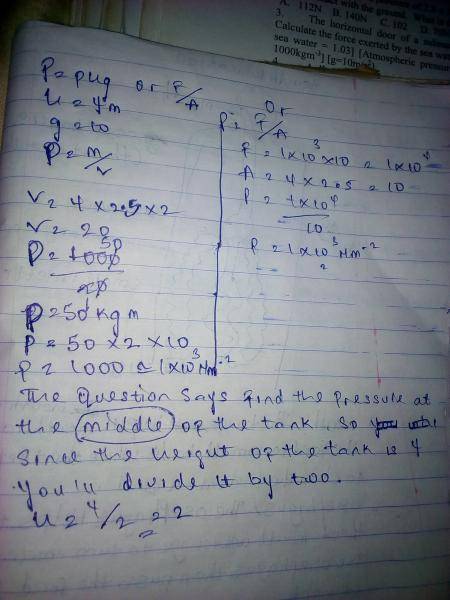 A. 112N B. 140N C. 102
3. The horizontal door of a
Calculate the force exerted by the sea
sea water = 1.03] [Atmospheric pressure
1000kgm-3] [g=10m/s
P = ρhg or F/A
h = 4m
g = 10
ρ = m/v
v = 4 x 2.5 x 2
v = 20
ρ = 1000
20
50
ρ = 50 kg m
P = 50 x 2 x 10
P = 1000 = 1x10³ Nm-2
or
P = F/A
F = 1x10³ x10 = 1x10⁴
A = 4 x 2.5 = 10
P = 1x10⁴
10
P = 1x10³ Nm-2
The question says find the pressure at
the middle of the tank. So
since the height of the tank is 4
you'll divide it by two.
h = 4/2 = 2